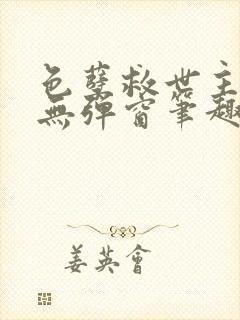 色孽救世主
無彈窗筆趣
姜英會